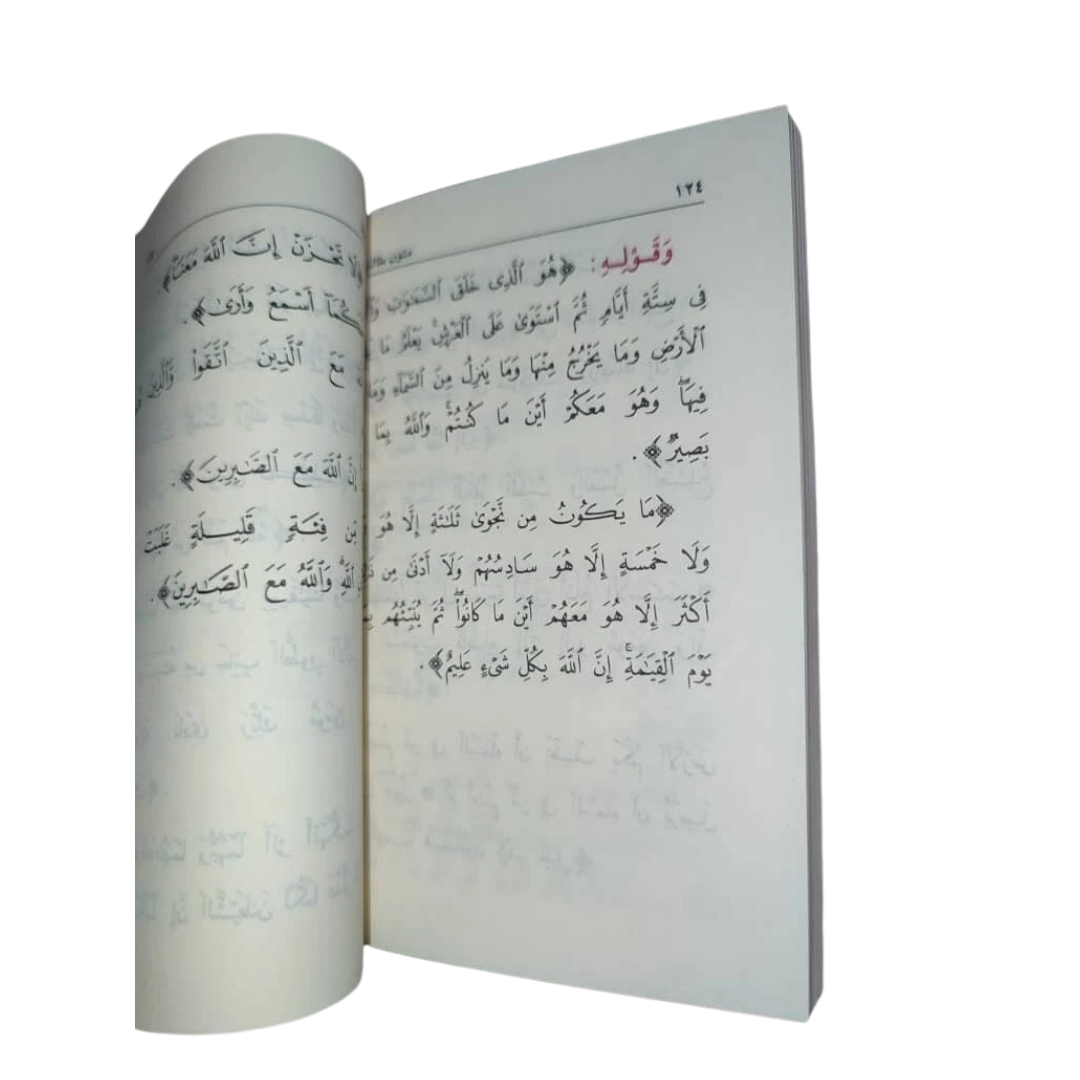 ١٢٤
متون طالب
وَقَوْلِهِ: ﴿هُوَ ٱلَّذِى خَلَقَ ٱلسَّمَٰوَٰتِ
فِى سِتَّةِ أَيَّامٍ ثُمَّ ٱسْتَوَىٰ عَلَى ٱلْعَرْشِۚ يَعْلَمُ مَا
ٱلْأَرْضِ وَمَا يَخْرُجُ مِنْهَا وَمَا يَنزِلُ مِنَ ٱلسَّمَآءِ
فِيهَاۖ وَهُوَ مَعَكُمْ أَيْنَ مَا كُنتُمْۚ وَٱللَّهُ بِمَا
بَصِيرٌ﴾.
﴿مَا يَكُونُ مِن نَّجْوَىٰ ثَلَٰثَةٍ إِلَّا هُوَ
وَلَا خَمْسَةٍ إِلَّا هُوَ سَادِسُهُمْ وَلَآ أَدْنَىٰ مِن
أَكْثَرَ إِلَّا هُوَ مَعَهُمْ أَيْنَ مَا كَانُوا۟ۖ ثُمَّ يُنَبِّئُهُم
يَوْمَ ٱلْقِيَٰمَةِۚ إِنَّ ٱللَّهَ بِكُلِّ شَىْءٍ عَلِيمٌ﴾.
لَا تَحْزَنْ إِنَّ ٱللَّهَ مَعَنَا﴾.
أَسْمَعُ وَأَرَىٰ﴾.
مَعَ ٱلَّذِينَ ٱتَّقَوا۟ وَّٱلَّذِينَ
إِنَّ ٱللَّهَ مَعَ ٱلصَّٰبِرِينَ﴾.
مِّن فِئَةٍ قَلِيلَةٍ غَلَبَتْ
ٱللَّهِۗ وَٱللَّهُ مَعَ ٱلصَّٰبِرِينَ﴾.